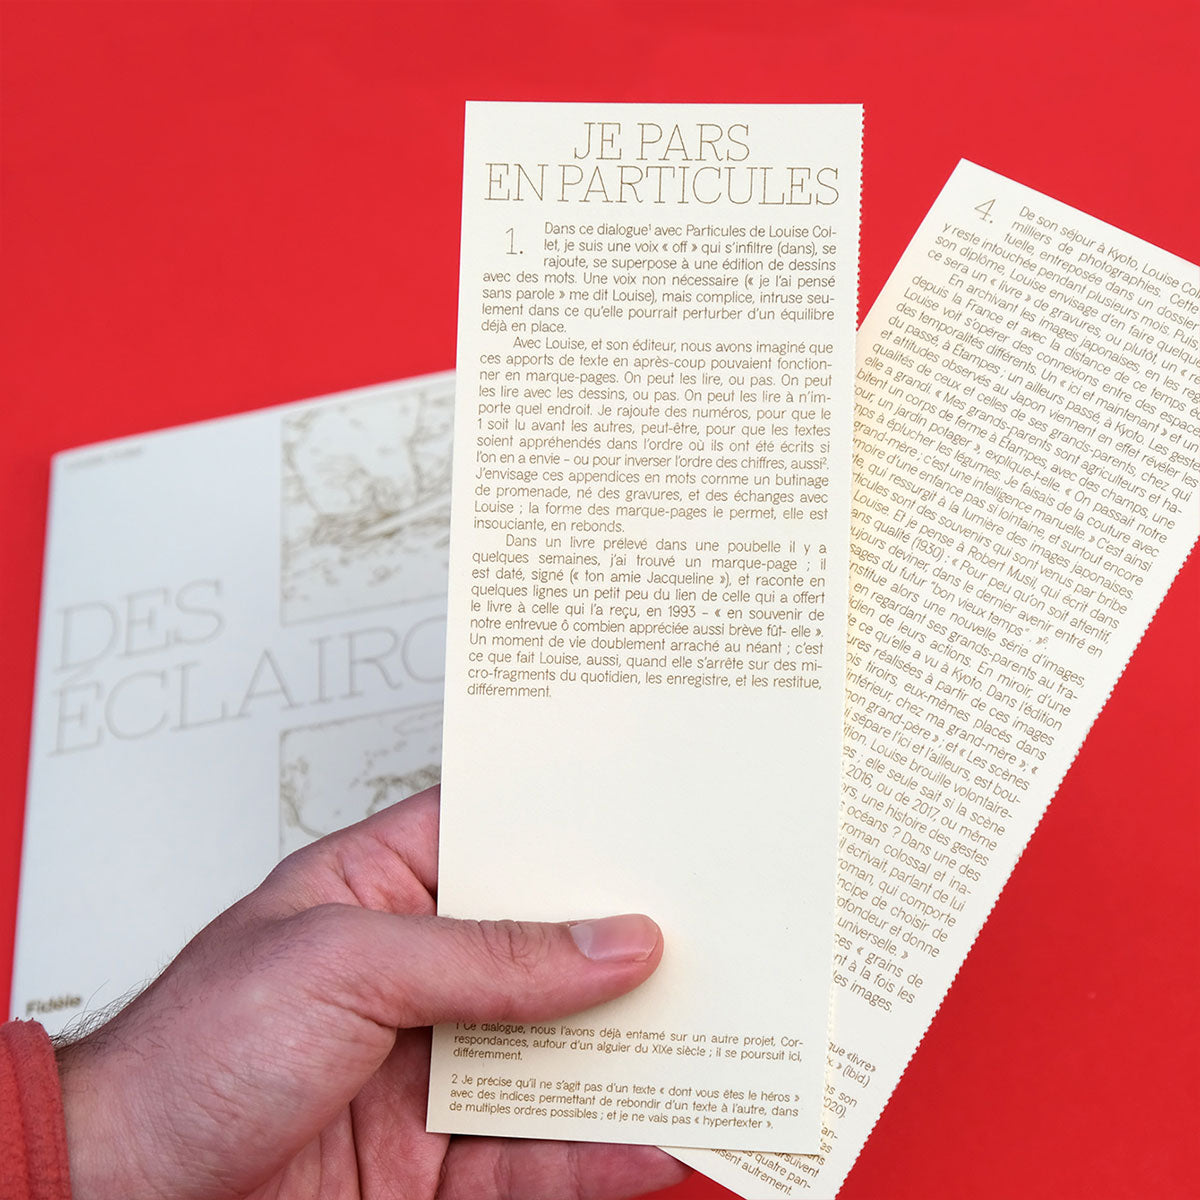 JE PARS
EN PARTICULES
1.
Dans ce dialogue¹ avec Particules de Louise Col-
let, je suis une voix « off » qui s’infiltre (dans), se
rajoute, se superpose à une édition de dessins
avec des mots. Une voix non nécessaire (« je l’ai pensé
sans parole » me dit Louise), mais complice, intruse seu-
lement dans ce qu’elle pourrait perturber d’un équilibre
déjà en place.
Avec Louise, et son éditeur, nous avons imaginé que
ces apports de texte en après-coup pouvaient fonction-
ner en marque-pages. On peut les lire, ou pas. On peut
les lire avec les dessins, ou pas. On peut les lire à n’im-
porte quel endroit. Je rajoute des numéros, pour que le
1 soit lu avant les autres, peut-être, pour que les textes
soient appréhendés dans l’ordre où ils ont été écrits si
l’on en a envie – ou pour inverser l’ordre des chiffres, aussi².
J’envisage ces appendices en mots comme un butinage
de promenade, né des gravures, et des échanges avec
Louise ; la forme des marque-pages le permet, elle est
insouciante, en rebonds.
Dans un livre prélevé dans une poubelle il y a
quelques semaines, j’ai trouvé un marque-page ; il
est daté, signé (« ton amie Jacqueline »), et raconte en
quelques lignes un petit peu du lien de celle qui a offert
le livre à celle qui l’a reçu, en 1993 – « en souvenir de
notre entrevue ô combien appréciée aussi brève fût- elle ».
Un moment de vie doublement arraché au néant ; c’est
ce que fait Louise, aussi, quand elle s’arrête sur des mi-
cro-fragments du quotidien, les enregistre, et les restitue,
différemment.
1 Ce dialogue, nous l’avons déjà entamé sur un autre projet, Cor-
respondances, autour d’un alguier du XIXe siècle ; il se poursuit ici,
différemment.
2 Je précise qu’il ne s’agit pas d’un texte « dont vous êtes le héros »
avec des indices permettant de rebondir d’un texte à l’autre, dans
de multiples ordres possibles ; et je ne vais pas « hypertexter ».
4.
De son séjour à Kyoto, Louise Col-
milliers de photographies. Cette
tuelle, entreposée dans un dossier
y reste intouchée pendant plusieurs mois. Puis,
son diplôme, Louise envisage d’en faire quelque
ce sera un « livre » de gravures, ou plutôt, un « re
En archivant les images japonaises, en les reg
depuis la France et avec la distance de ce temps
des temporalités différents. Un « ici et maintenant » et un
Louise voit s’opérer des connexions entre des espaces
du passé, à Étampes ; un ailleurs passé, à Kyoto. Les gestes
et attitudes observés au Japon viennent en effet révéler les
qualités de ceux et celles de ses grands-parents, chez qui
elle a grandi. « Mes grands-parents sont agriculteurs et ha-
bitent un corps de ferme à Étampes, avec des champs, une
cour, un jardin potager », explique-t-elle. « On passait notre
mps à éplucher les légumes. Je faisais de la couture avec
grand-mère ; c’est une intelligence manuelle. » C’est ainsi
moire d’une enfance pas si lointaine, et surtout encore
te, qui ressurgit à la lumière des images japonaises.
ticules sont des souvenirs qui sont venus par bribe
Louise. Et je pense à Robert Musil, qui écrit dans
ans qualité (1930) : « Pour peu qu’on soit attentif,
ujours deviner, dans le dernier avenir entré en
sages du futur “bon vieux temps”. »
nstitue alors une nouvelle série d’images,
en regardant ses grands-parents au tra-
dien de leurs actions. En miroir, d’une
e ce qu’elle a vu à Kyoto. Dans l’édition
ures réalisées à partir de ces images
ois tiroirs, eux-mêmes placés dans
intérieur, chez ma grand-mère » ; «
mon grand-père » ; et « Les scènes
i sépare l’ici et l’ailleurs, est bou-
tion, Louise brouille volontaire-
es ; elle seule sait si la scène
2016, ou de 2017, ou même
ors, une histoire des gestes
océans ? Dans une des
roman colossal et ina-
il écrivait, parlant de lui
roman, qui comporte
ncipe de choisir de
ofondeur et donne
universelle. »
ces « grains de
nt à la fois les
les images.
que «livre»
x. » (ibid.)
s son
2020).
suivent
es quatre pan-
lisent autrement.
DES
ÉCLAIRC
Fidèle